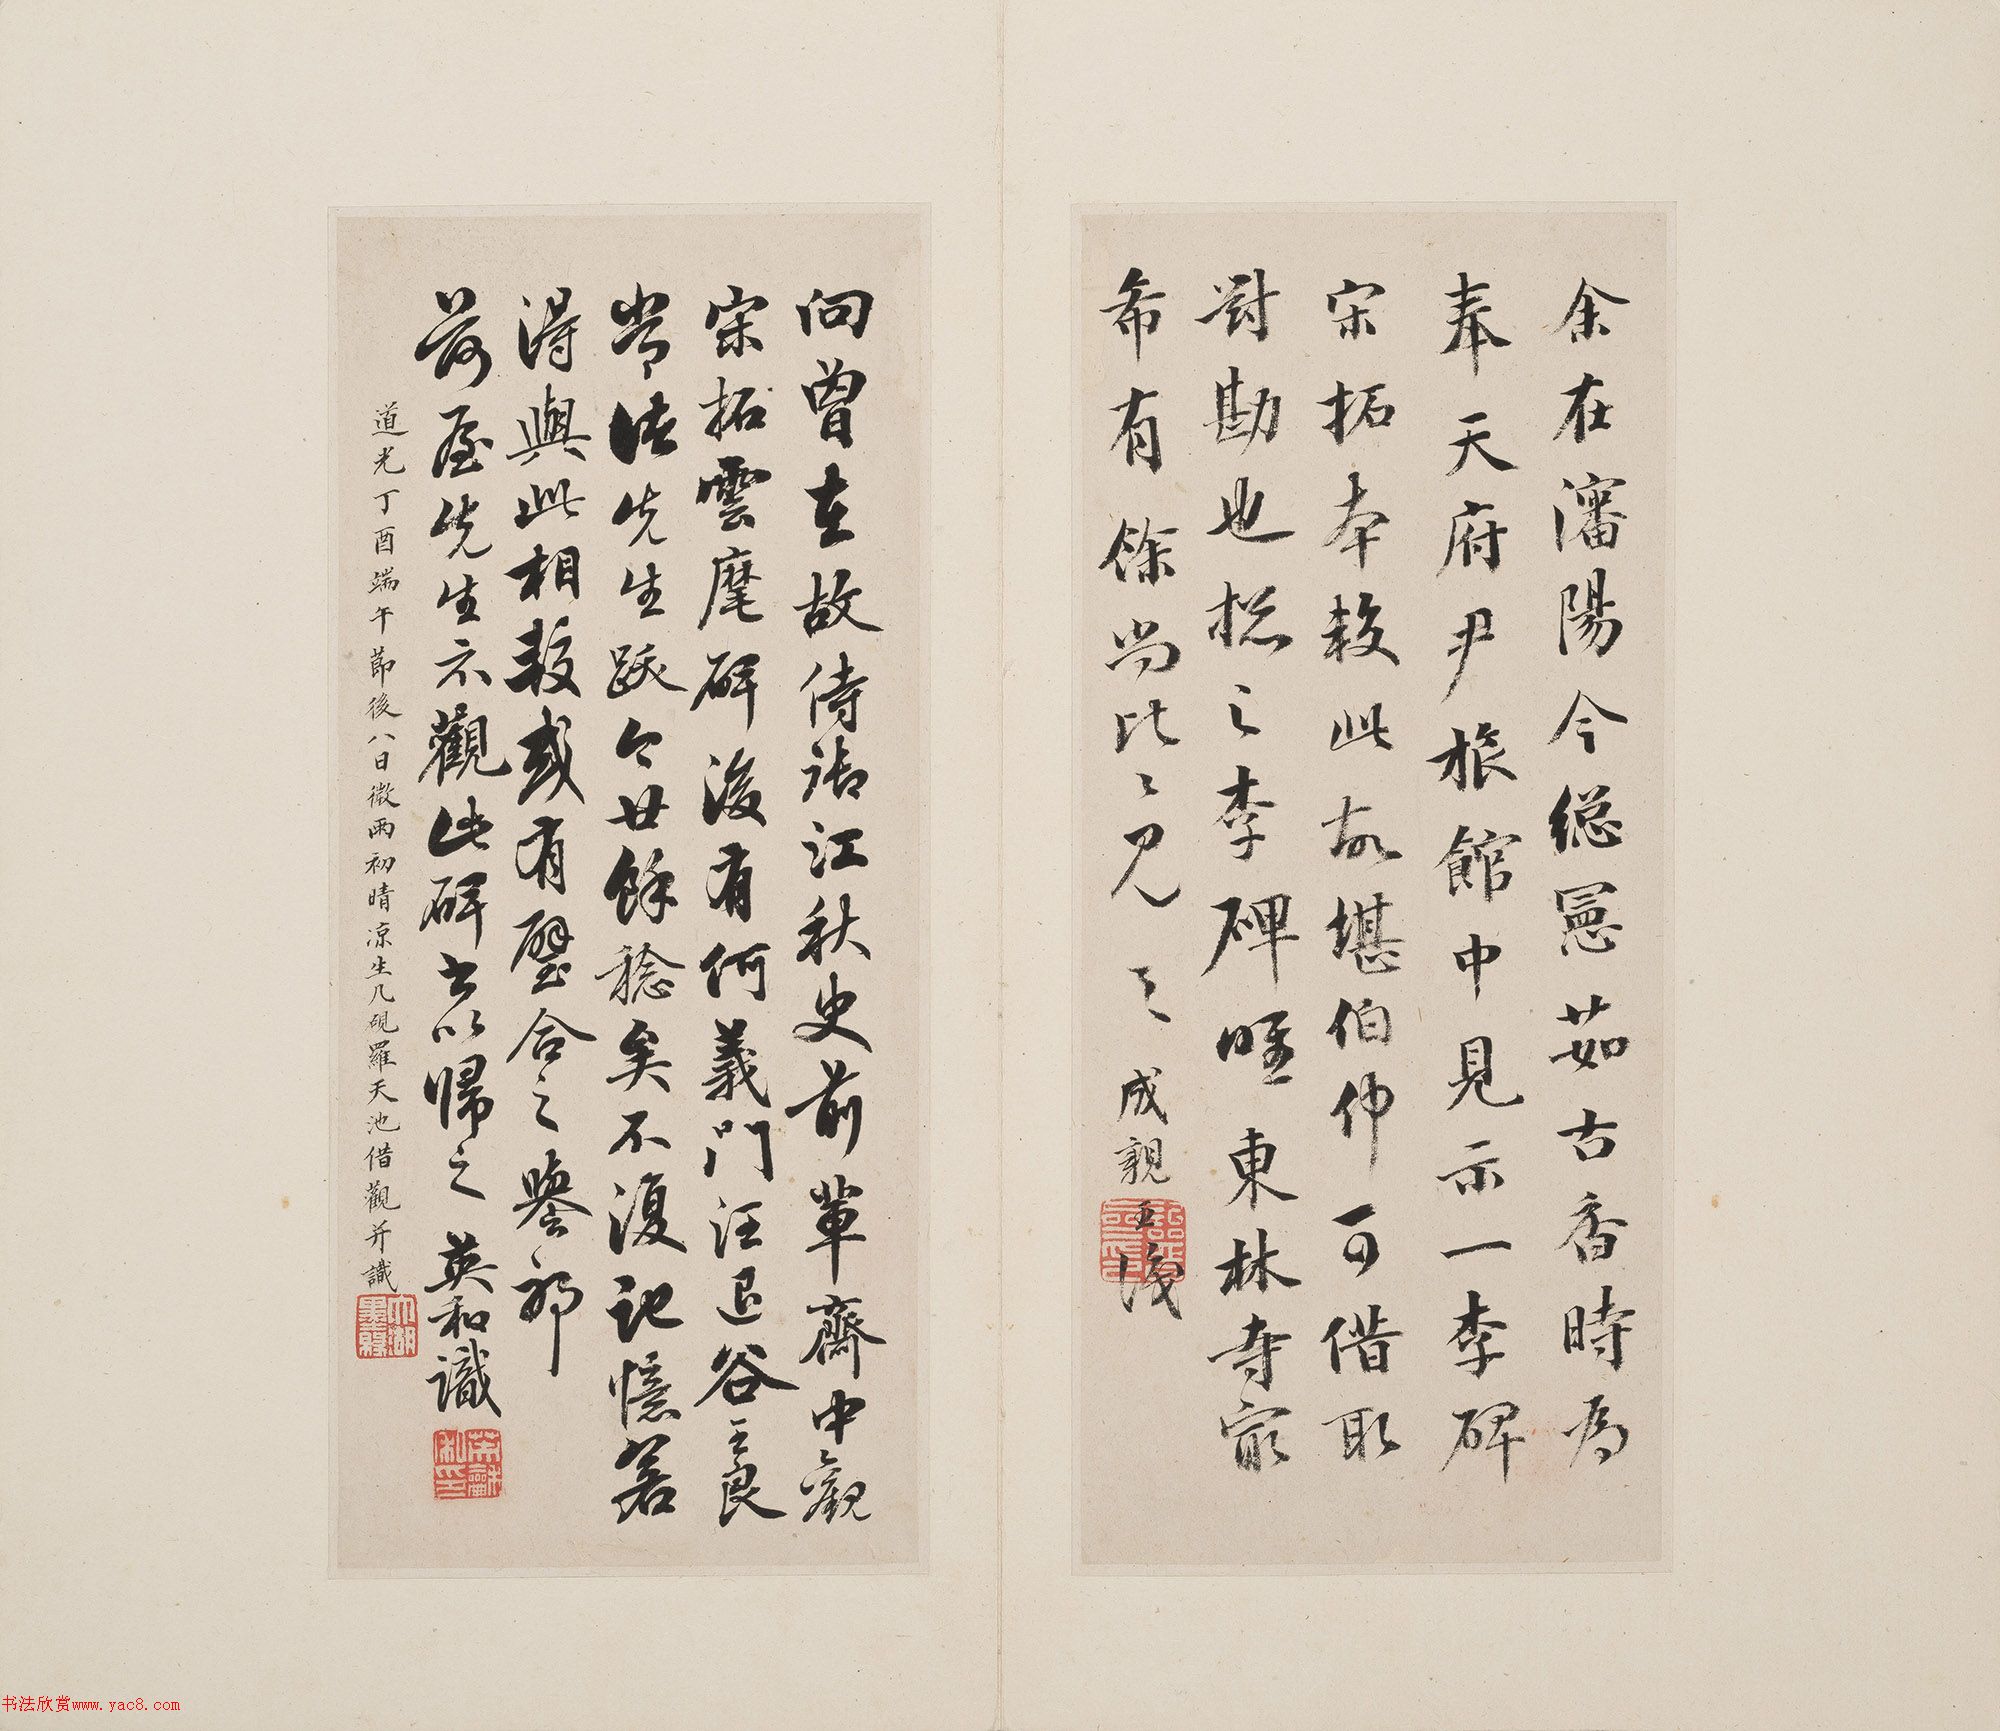 余在瀋陽今總憲茹古香時為
奉天府尹旅館中見示一李碑
宋拓本較此故堪伯仲可借取
對勘也捴之李碑唯東林寺最
希有餘尚比比見
之 成親王識
向曾在故侍御江秋史前輩齋中觀
宋拓雲麾碑後有何義門汪退谷王良
常諸先生跋今廿餘稔矣不復記憶若
得與此相較或有璧合之譽耶
荷屋先生示觀此碑書以歸之 英和識
道光丁酉端午節後八日微雨初晴凉生几硯羅天池借觀并識
书法欣赏www.yac8.com